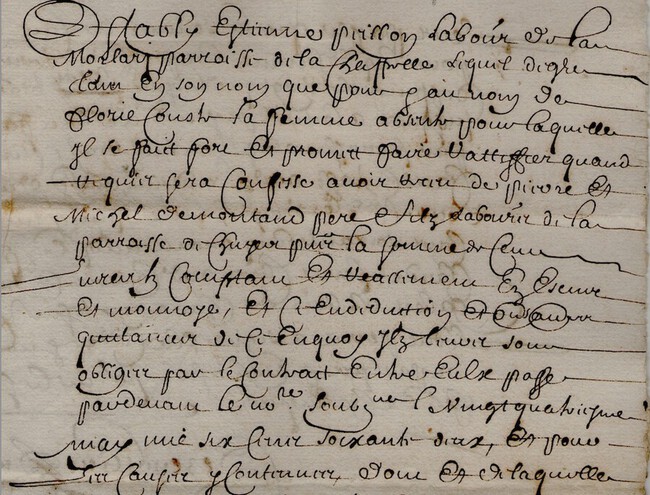 Estably Estienne perisson labour de la
Morlary parroisse de la Chappelle lequel de gre
tant en son nom que pour & au nom de
Florie Couste sa femme absente pour laquelle
Il se fait fort Et promet faire rattiffier quand
requis sera Confesse avoir receu de pierre Et
Michel demontand pere & filz labours de la
parroisse de pnts la somme de Cent
livres tz Comptant Et reallement En Escus
Et monnoye, Et Ce En deduction Et
quitances de Ce Enquoy Ilz leurs sont
obliges par le Contract Entre Eulx passe
pardevant le no.re soubz.ne l vingt quatriesme
may mil six Cent soixante deux, Et pour
les Causes y Contenues, dont Et de laquelle